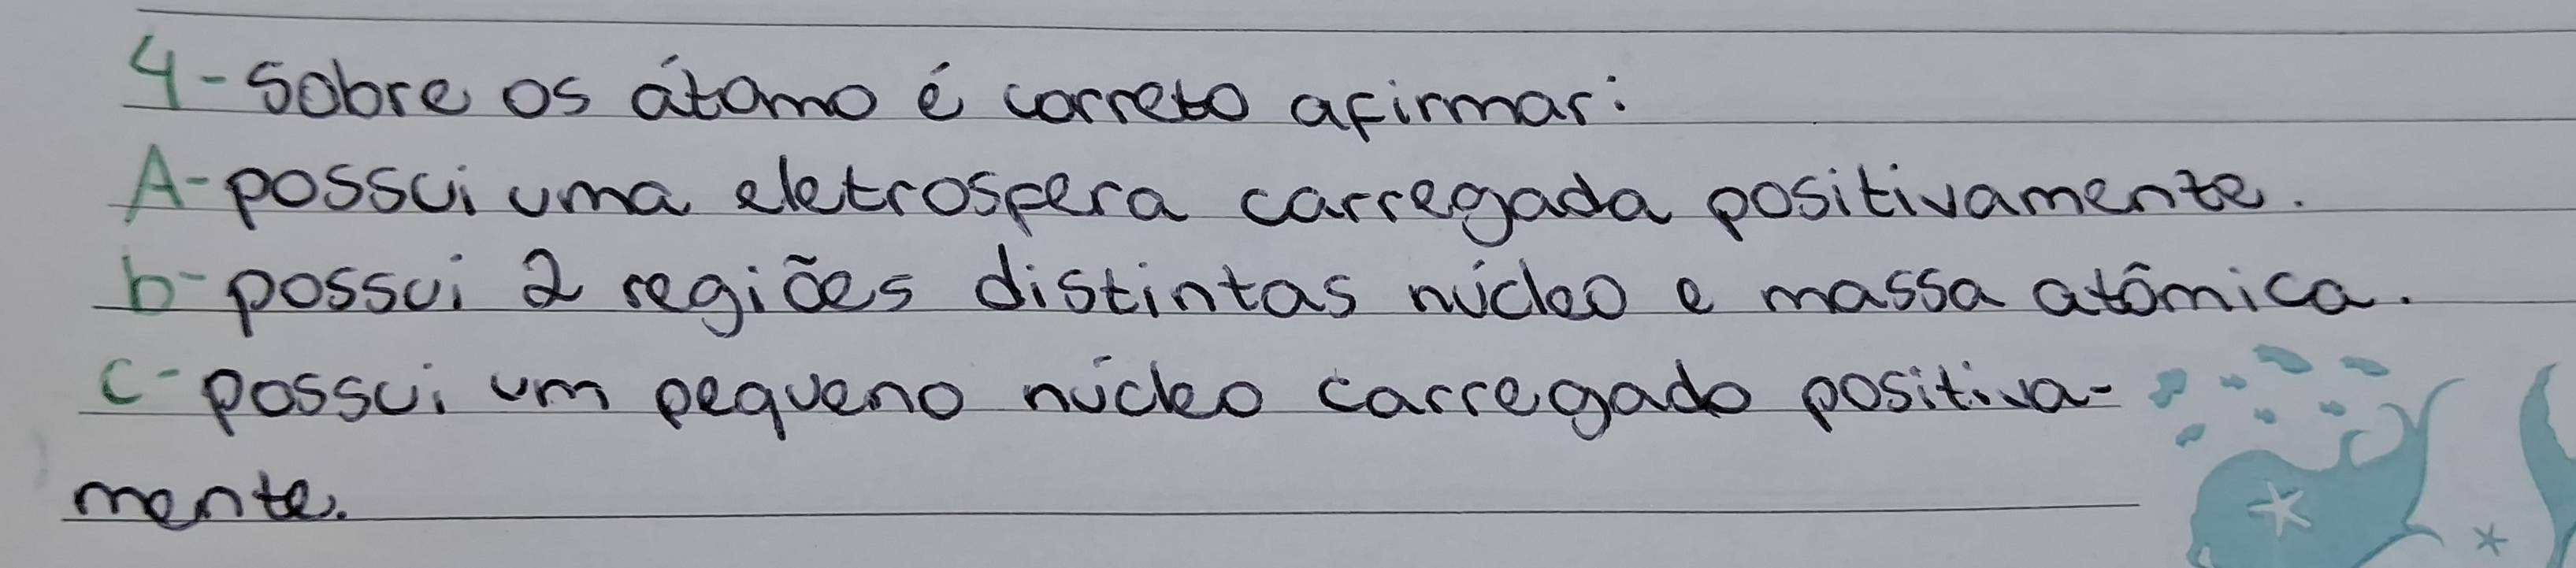 4-Sobre os átomo é correto afirmar:
A-possui uma eletrosfera carregada positivamente.
b-possui 2 regiões distintas núcleo e massa atômica.
c-possui um pequeno núcleo carregado positiva-
mente.